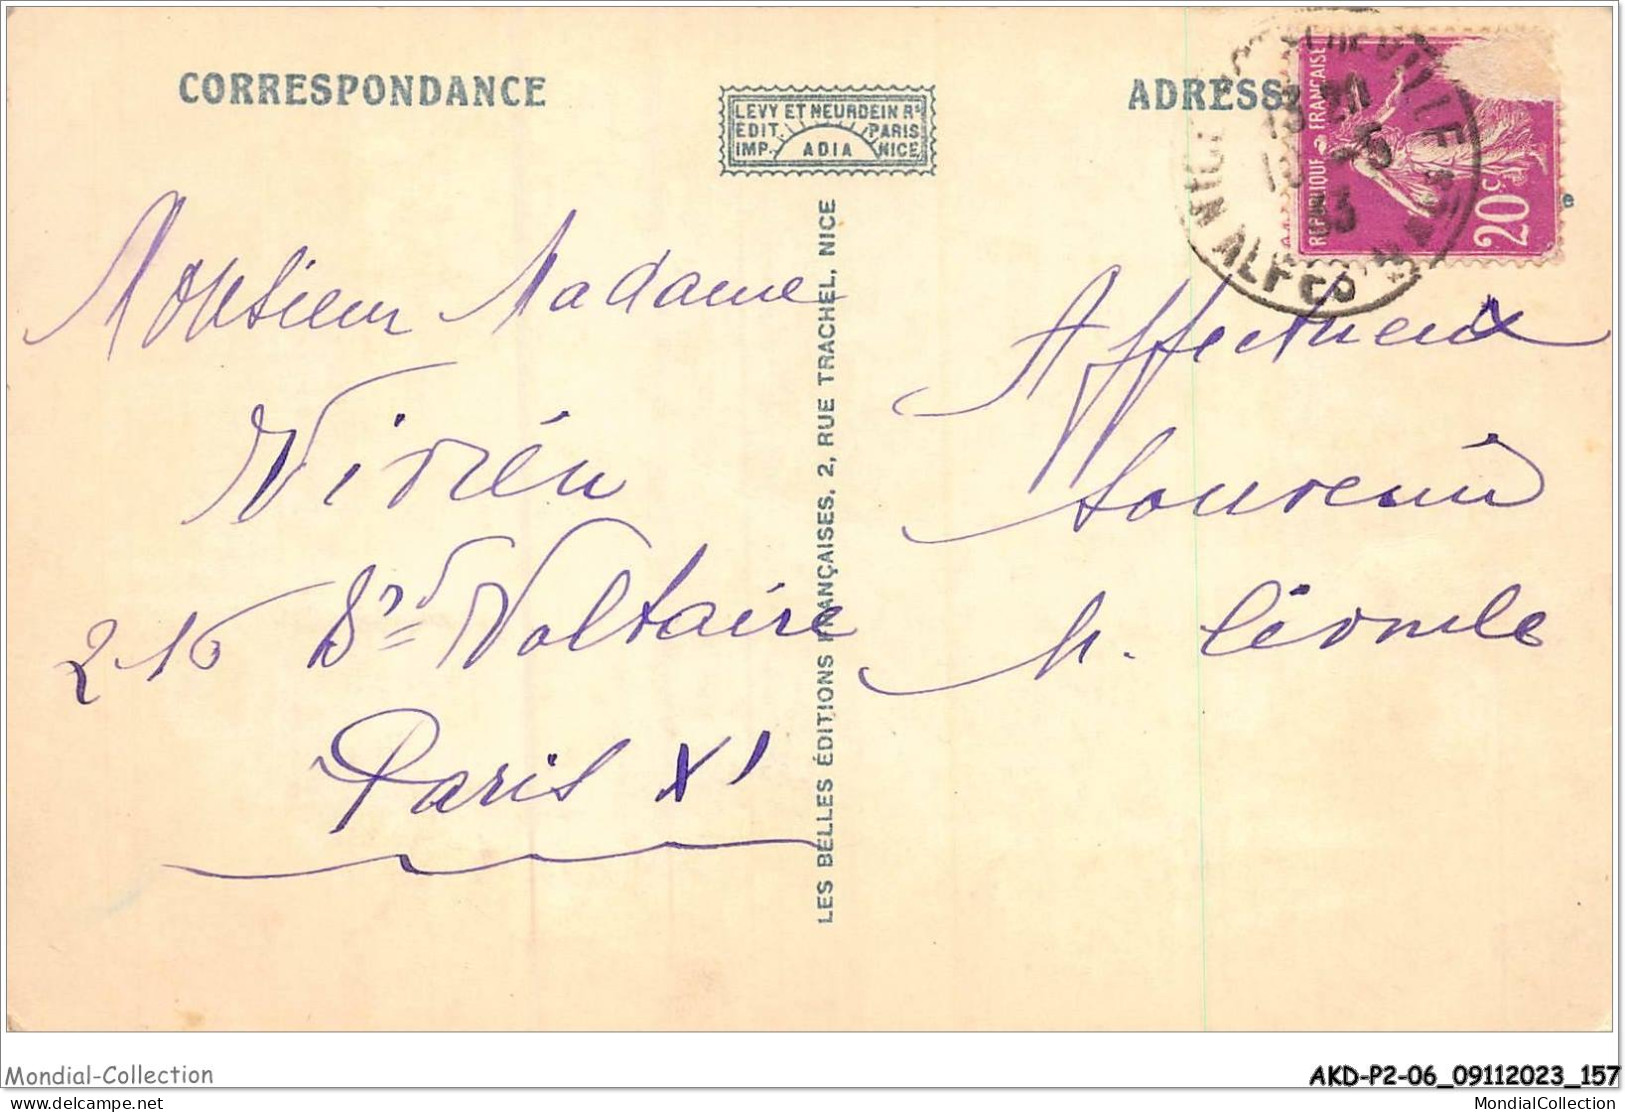 CORRESPONDANCE
LEVY ET NEURDEIN Rs
EDIT. PARIS
IMP. ADIA NICE
ADRESSE
REPUBLIQUE FRANÇAISE
20c
NICE
ALPES
Monsieur Madame
Vivién
216 Brd Voltaire
Paris XI
LES BELLES ÉDITIONS FRANÇAISES, 2, RUE TRACHEL, NICE
Affectueux
Souvenir
Mondial-Collection
delcampe.net
AKD-P2-06_09112023_157
MondialCollection